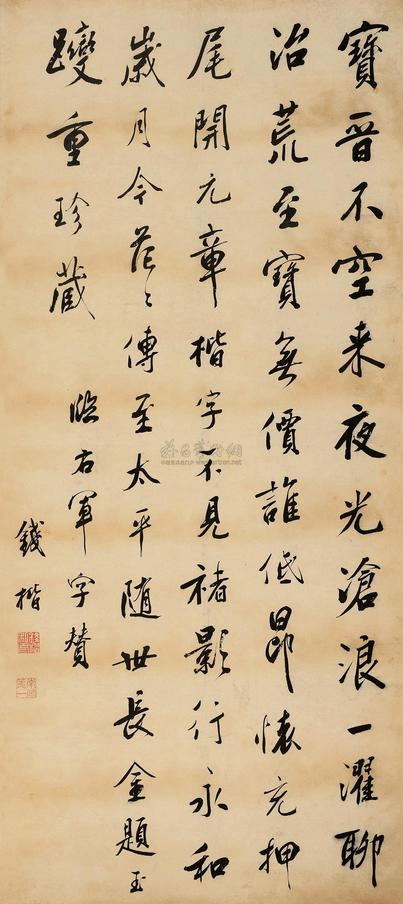 寶晉不空来夜光滄浪一濯聊
治荒至寶無價誰低昂懐充押
尾開元章楷字不見褚影行永和
歲月今茫〻傳至太平随世長金題玉
躞重珍藏
臨右軍字贊
錢楷